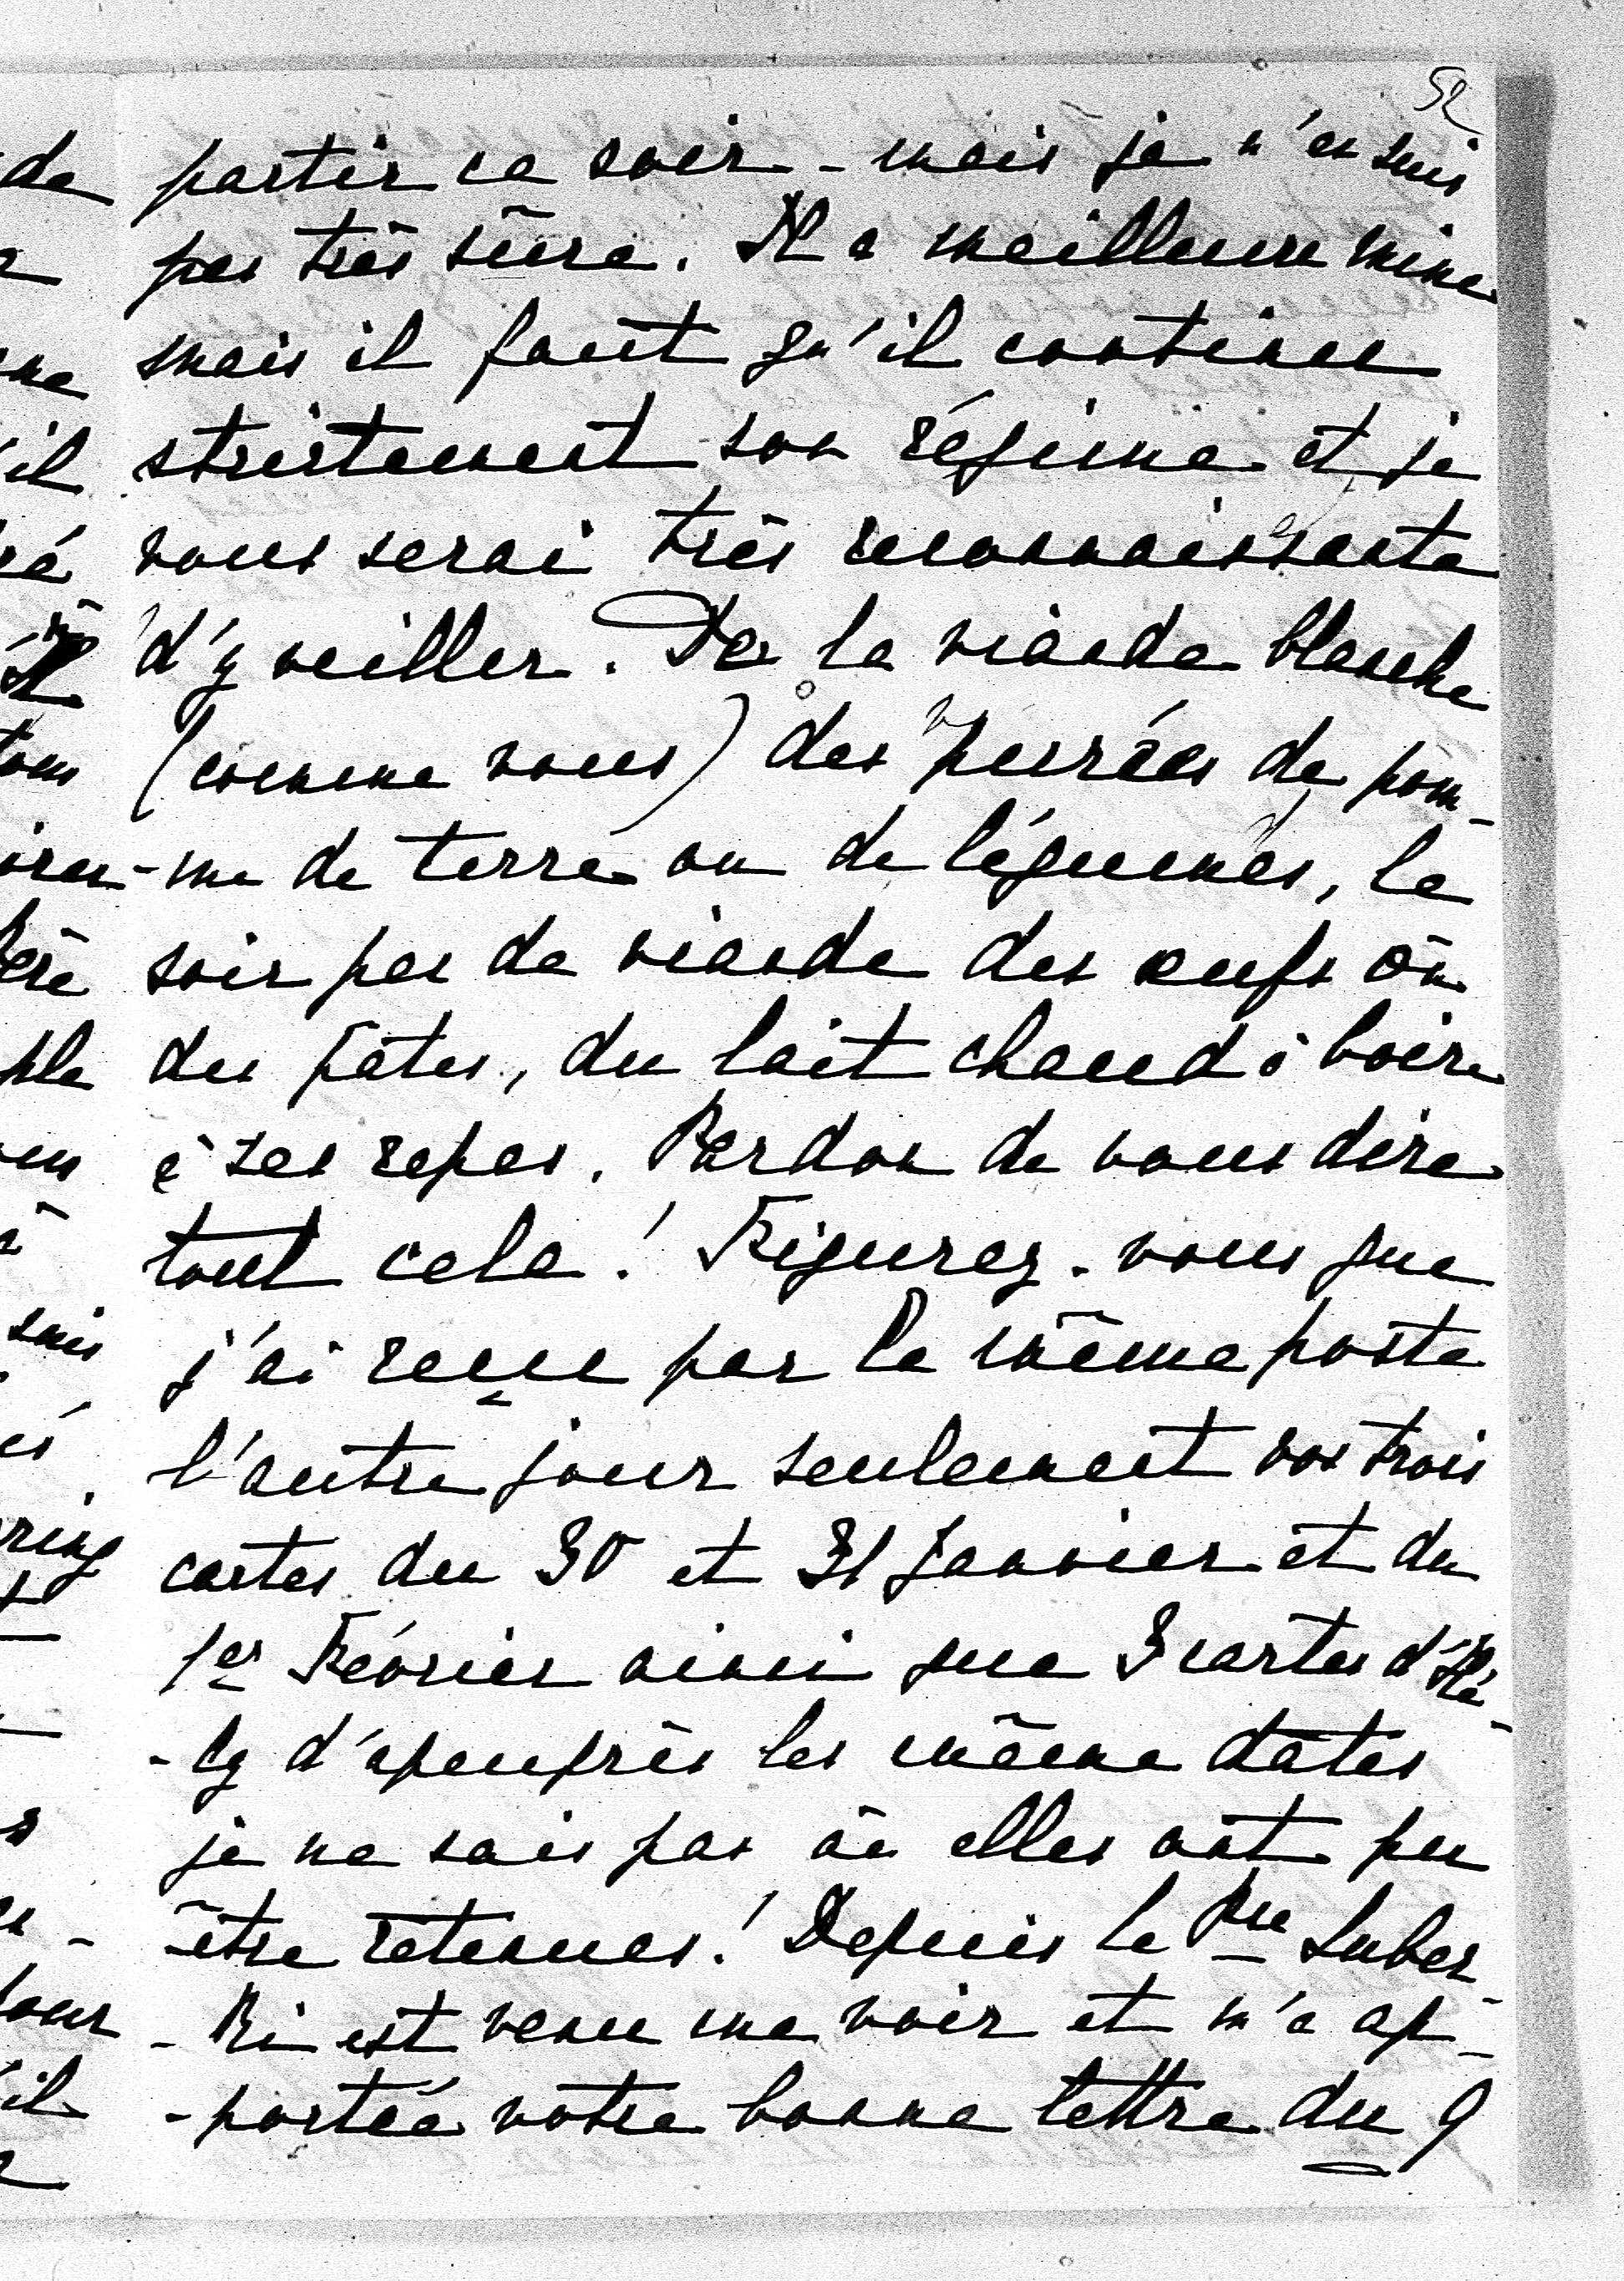 52
partir ce soir - mais je n'en suis
pas très sûre. Il a meilleure mine
mais il faut qu'il continue
strictement son régime et je
vous serai très reconnaissante
d'y veiller. De la viande blanche
(comme vous) des purrées de pom-
-me de terre ou de légumes, le
soir pas de viande des œufs ou
des pâtes, du lait chaud à boire
à ses repas. Pardon de vous dire
tout cela! Figurez-vous que
j'ai reçue par la même poste
l'autre jour seulement vos trois
cartes du 30 et 31 Janvier et du
1er Février ainsi que 3 cartes d'Hé-
-ly d'apeuprès les même dates
je ne sais pas où elles ont pu
être retenues! Depuis le Pce Luber-
-ki est venu me voir et m'a ap-
-portée votre bonne lettre du 9